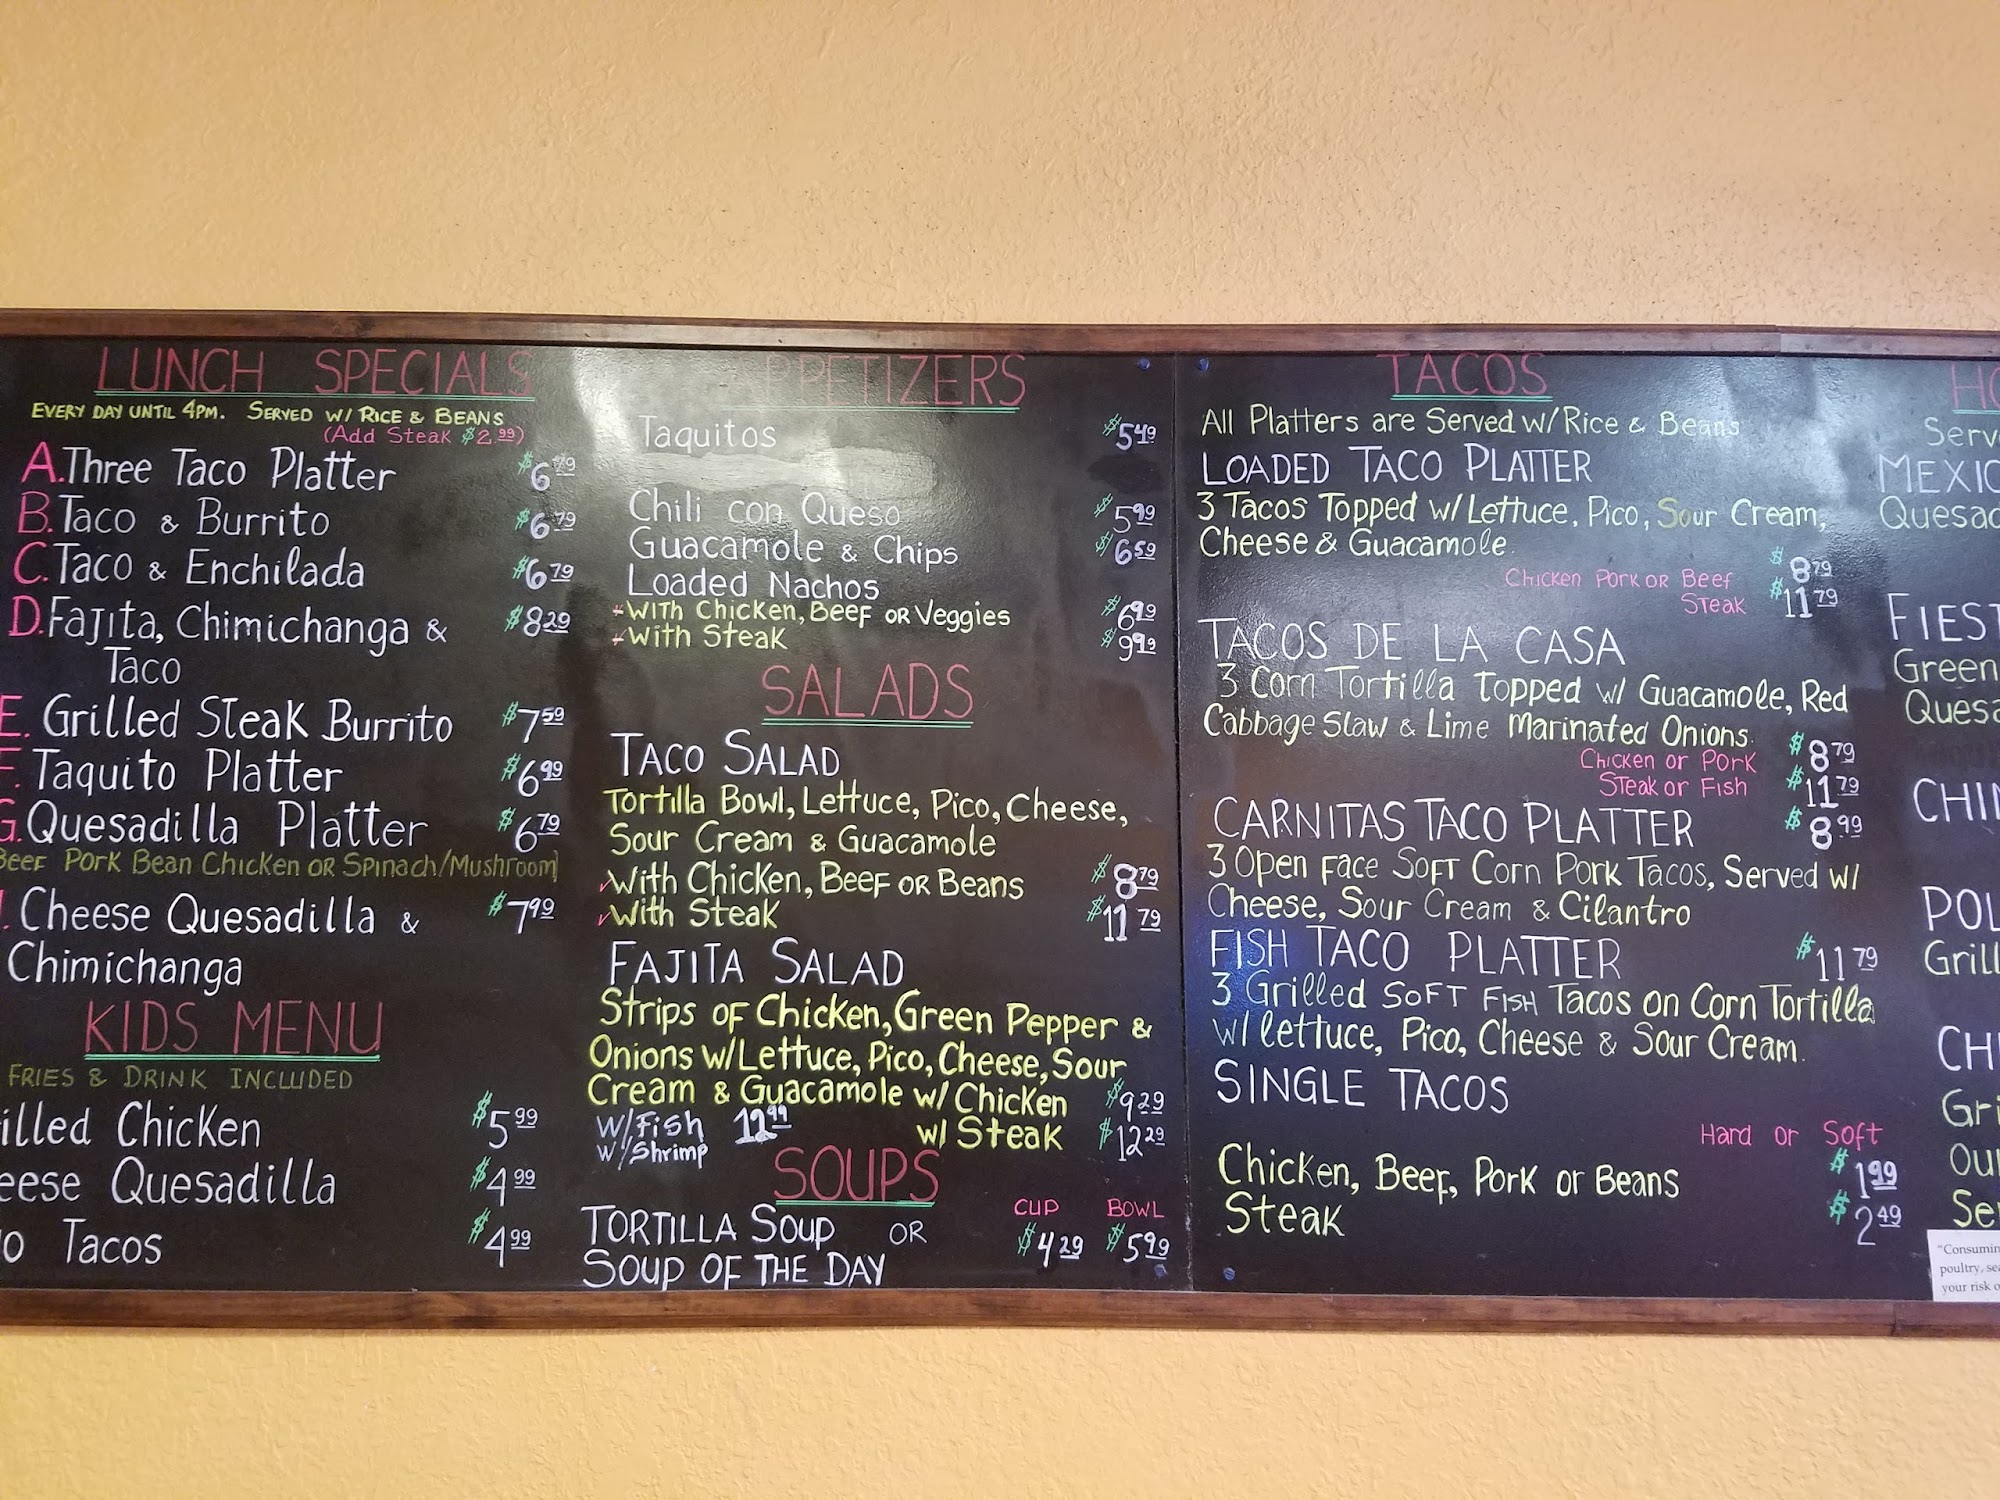 LUNCH SPECIALS
EVERY DAY UNTIL 4PM. SERVED W/ RICE & BEANS
(Add Steak $2.99)
A. Three Taco Platter $6.79
B. Taco & Burrito $6.79
C. Taco & Enchilada $6.79
D. Fajita, Chimichanga & $8.29
Taco
E. Grilled Steak Burrito $7.59
F. Taquito Platter $6.99
G. Quesadilla Platter $6.79
Beef Pork Bean Chicken or Spinach/Mushroom)
Cheese Quesadilla & $7.99
Chimichanga
KIDS MENU
FRIES & DRINK INCLUDED
illed Chicken $5.99
eese Quesadilla $4.99
o Tacos $4.99
APPETIZERS
Taquitos $5.49
Chili con Queso $5.99
Guacamole & Chips $6.59
Loaded Nachos
With Chicken, Beef or Veggies $6.99
With Steak $9.99
SALADS
TACO SALAD
Tortilla Bowl, Lettuce, Pico, Cheese,
Sour Cream & Guacamole
With Chicken, Beef or Beans $8.79
With Steak $11.79
FAJITA SALAD
Strips of Chicken, Green Pepper &
Onions w/Lettuce, Pico, Cheese, Sour
Cream & Guacamole w/ Chicken $9.29
w/Fish 12.99 w/ Steak $12.29
w/Shrimp
SOUPS
CUP BOWL
TORTILLA SOUP OR $4.29 $5.99
SOUP OF THE DAY
TACOS
All Platters are Served w/ Rice & Beans
LOADED TACO PLATTER
3 Tacos Topped w/ Lettuce, Pico, Sour Cream,
Cheese & Guacamole.
Chicken Pork or Beef $8.79
Steak $11.79
TACOS DE LA CASA
3 Corn Tortilla topped w/ Guacamole, Red
Cabbage Slaw & Lime Marinated Onions.
Chicken or Pork $8.79
Steak or Fish $11.79
CARNITAS TACO PLATTER $8.99
3 Open Face Soft Corn Pork Tacos, Served w/
Cheese, Sour Cream & Cilantro
FISH TACO PLATTER $11.79
3 Grilled Soft Fish Tacos on Corn Tortilla
w/ lettuce, Pico, Cheese & Sour Cream.
SINGLE TACOS
Hard or Soft
Chicken, Beef, Pork or Beans $1.99
Steak $2.49
HO
Serv
MEXIC
Quesad
FIEST
Green
Quesa
CHIM
POL
Grill
CH
Gri
Our
Se
"Consumin
poultry, sea
your risk o